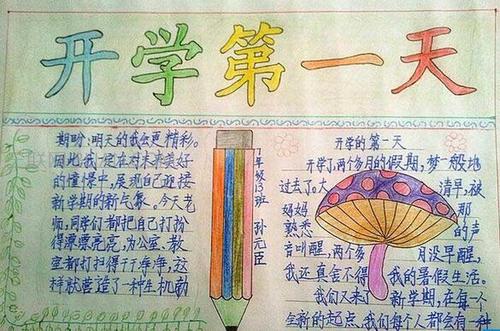 开学第一天
期盼:明天的我会更精彩。
因此,我一定在对未来美好
的憧憬中,展现自己迎接
新学期的新气象。今天老
师,同学们都把自己打扮
得漂漂亮亮,为公室、教
室都打扫得干干净净,这
样就营造了一种生机勃
年级13班 孙元臣
开学的第一天
开学了,两个多月的假期,梦一般地
过去了。大 清早,被
妈妈 那
熟悉 的声
音叫醒,两个多 月没早醒,
我还真舍不得 我的暑假生活。
我们又来了 新学期,在每个
全新的起点,我们每个人都会有一种